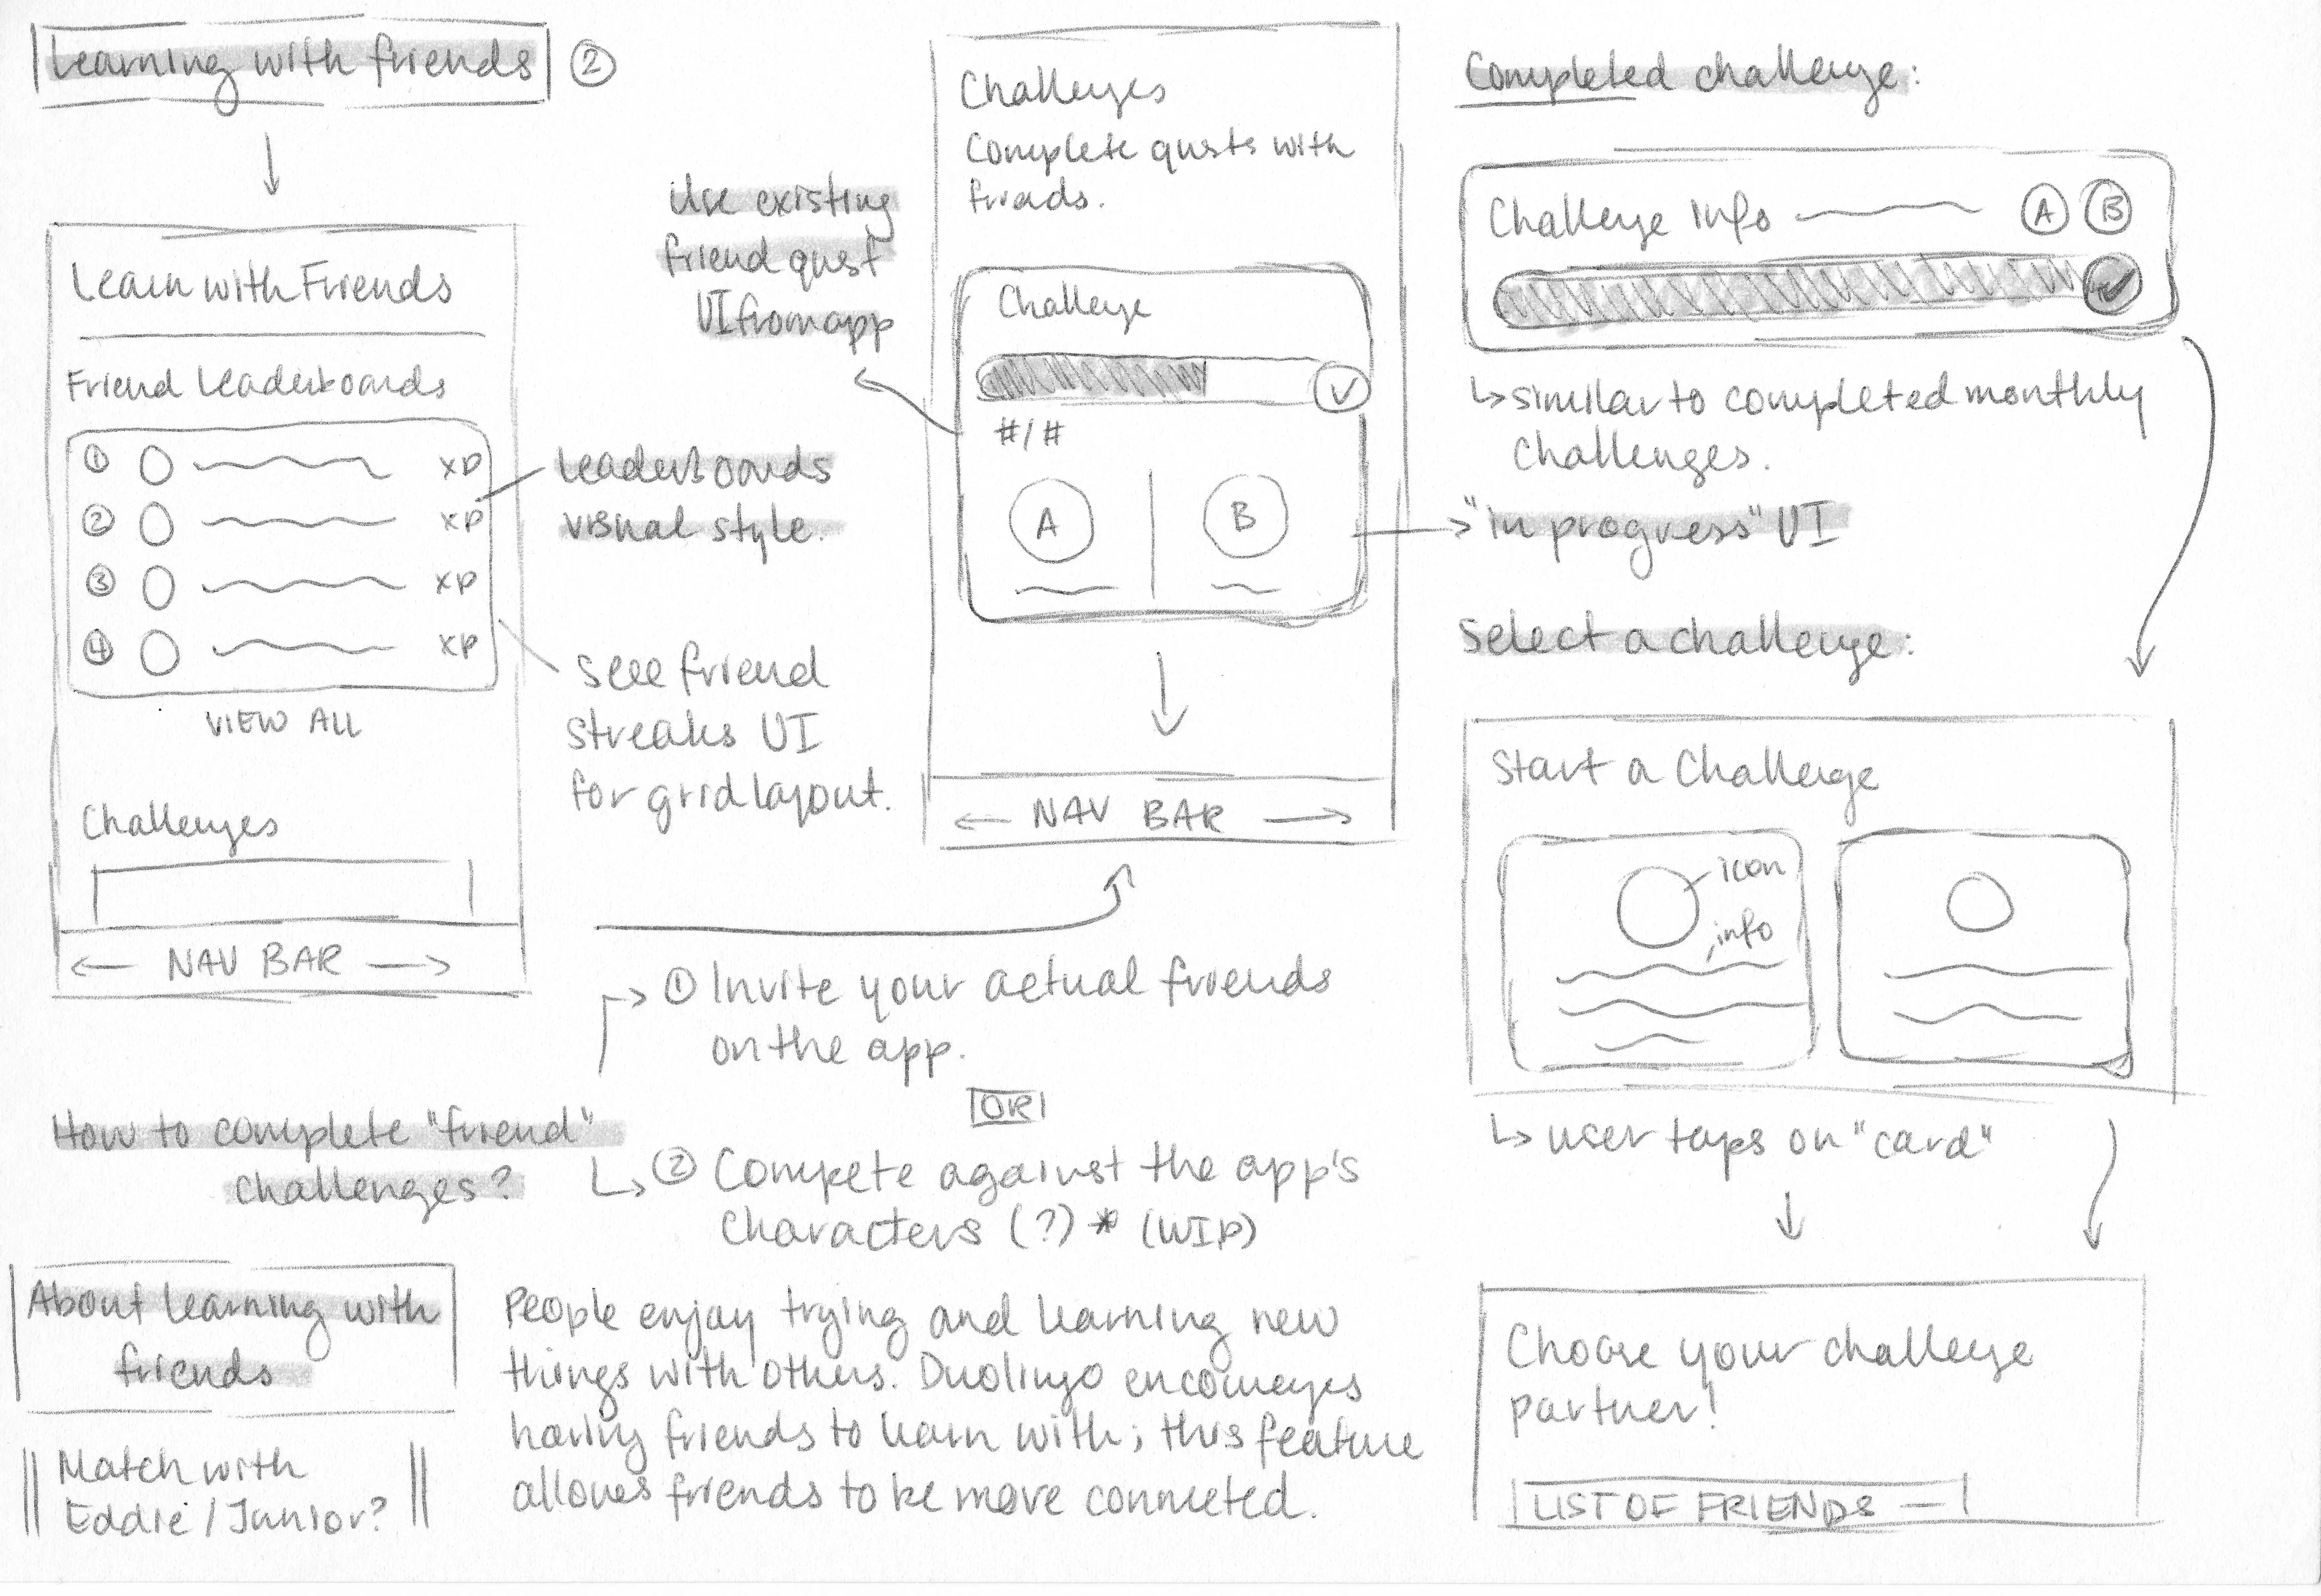 Learning with friends ②
Learn with Friends
Friend Leaderboards
① XP
② XP
③ XP
④ XP
VIEW ALL
Challenges
← NAV BAR →
Leaderboards
visual style.
see friend
streaks UI
for grid layout.
Use existing
friend quest
UI from app
Challenges
Complete quests with
friends.
Challenge
#/#
A B
← NAV BAR →
Completed challenge:
Challenge Info A B
↳ similar to completed monthly
challenges.
"in progress" UI
Select a challenge:
Start a Challenge
icon
info
↳ user taps on "card"
Choose your challenge
partner!
LIST OF FRIENDS —
How to complete "friend"
challenges?
① Invite your actual friends
on the app.
OR
② Compete against the app's
characters (?) * (WIP)
About learning with
friends
Match with
Eddie / Junior?
People enjoy trying and learning new
things with others. Duolingo encourages
having friends to learn with; this feature
allows friends to be more connected.